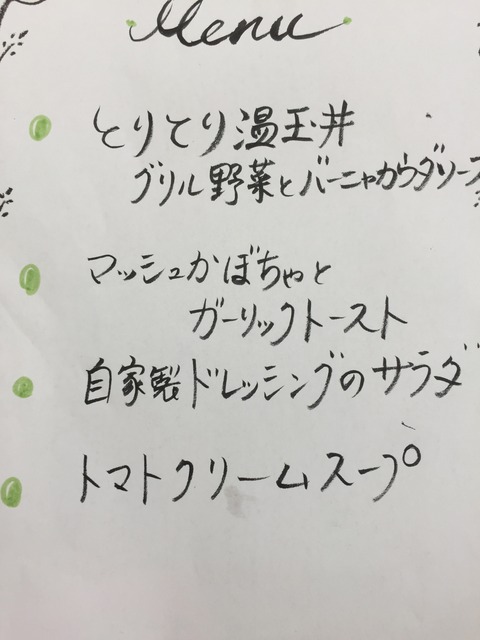 Menu
とりてり温玉丼
グリル野菜とバーニャカウダソース
マッシュかぼちゃと
ガーリックトースト
自家製ドレッシングのサラダ
トマトクリームスープ